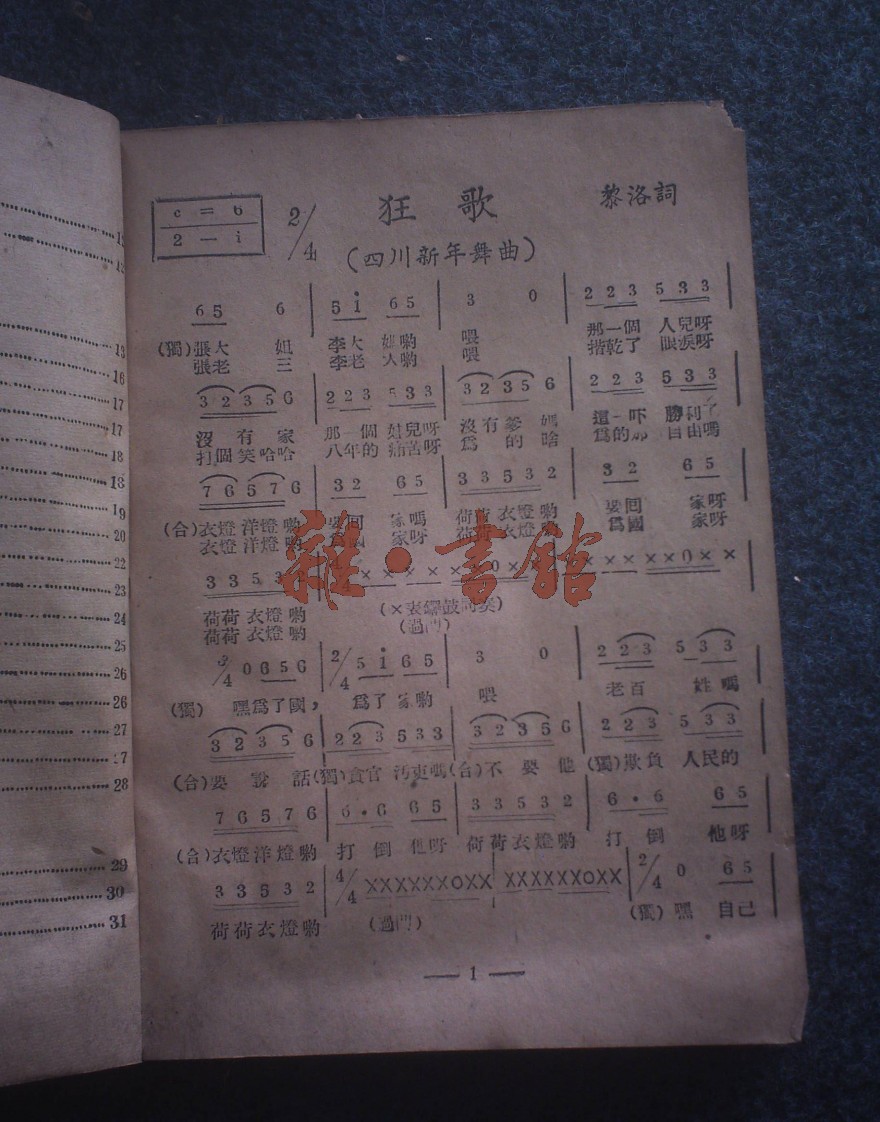 12
12
13
16
17
17
18
18
19
20
22
23
24
25
26
26
27
27
28
29
30
31
c = 6
2 — i
2/4 狂歌 黎洛詞
(四川新年舞曲)
65 6 | 5i 65 | 3 0 | 223 533 |
(獨)張大 姐 李大 姐喲 喂 那一個 人兒呀
張老 三 李老 大喲 喂 揩乾了 眼淚呀
32356 | 223 533 | 32356 | 223 533 |
沒有家 那一個 姓兒呀 沒有爹媽 這一吓 勝利了
打個笑哈哈 八年的 痛苦呀 爲的啥 爲的那 自由嗎
76576 | 32 65 | 33532 | 32 65 |
(合)衣燈洋燈喲 要回 家嗎 荷荷衣燈喲 要回 家呀
衣燈洋燈喲 爲國 家呀 荷荷衣燈喲 爲國 家呀
33532
荷荷 衣燈喲
荷荷 衣燈喲
(過門)
雜·書館
0656 | 2/4 5i 65 | 3 0 | 223 533 |
(獨) 嘿爲了國, 爲了 家喲 喂 老百 姓嗎
32356 | 223 533 | 32356 | 223 533 |
(合)要說話(獨)貪官 汚吏嗎(合)不要他(獨)欺負 人民的
76576 | 6·6 65 | 33532 | 6·6 65 |
(合)衣燈洋燈喲 打倒 他呀 荷荷衣燈喲 打倒 他呀
33532 | 4/4 XXXXXXOXX | XXXXXXOXX | 2/4 0 65 |
荷荷衣燈喲 (過門) (獨)嘿 自己
— 1 —